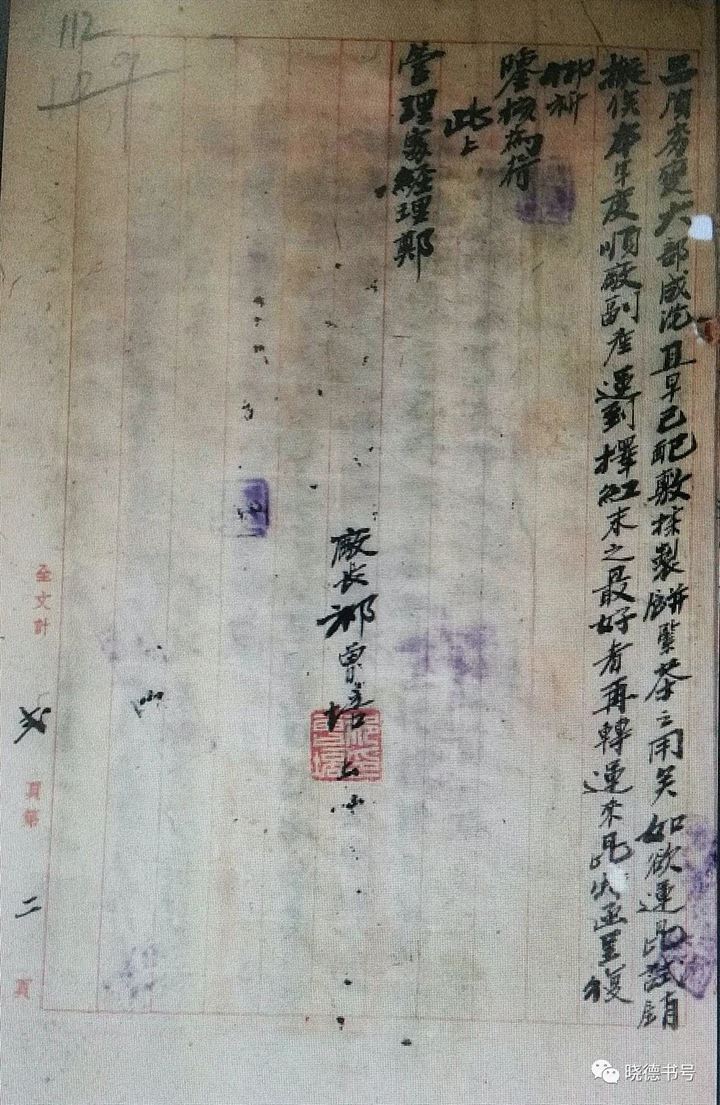 112
129
品質劣變大部成泥且早已配敷抹製餅蜑茶之用矣如欲運此試銷
擬俟本年度順廠副產運到擇紅末之最好者再轉運來此火函呈復
仰祈
鑒核為荷
此上
管理家經理鄭
廠長祁曾培上
全文計 頁第二頁
晓德书号